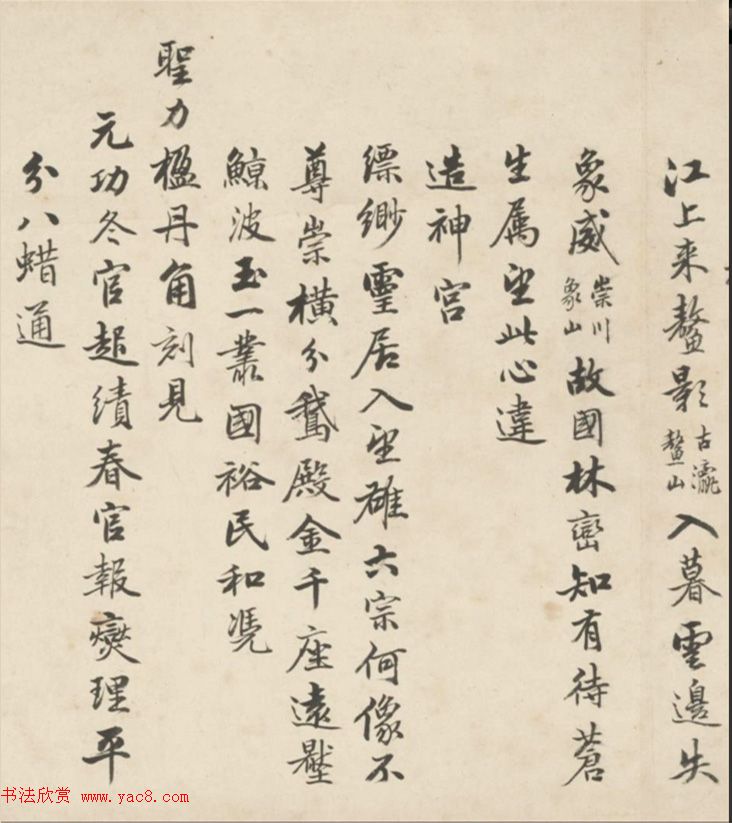 江上来鰲影古瀛鰲山入暮雲邊失
象威崇川象山故國林巒知有待蒼
生属望此心違
造神宮
縹緲靈居入望雄六宗何像不
尊崇橫分鵞殿金千座遠壓
鯨波玉一叢國裕民和凴
聖力楹丹角刻見
元功冬官起績春官報爕理平
分八蜡通
书法欣赏 www.yac8.com